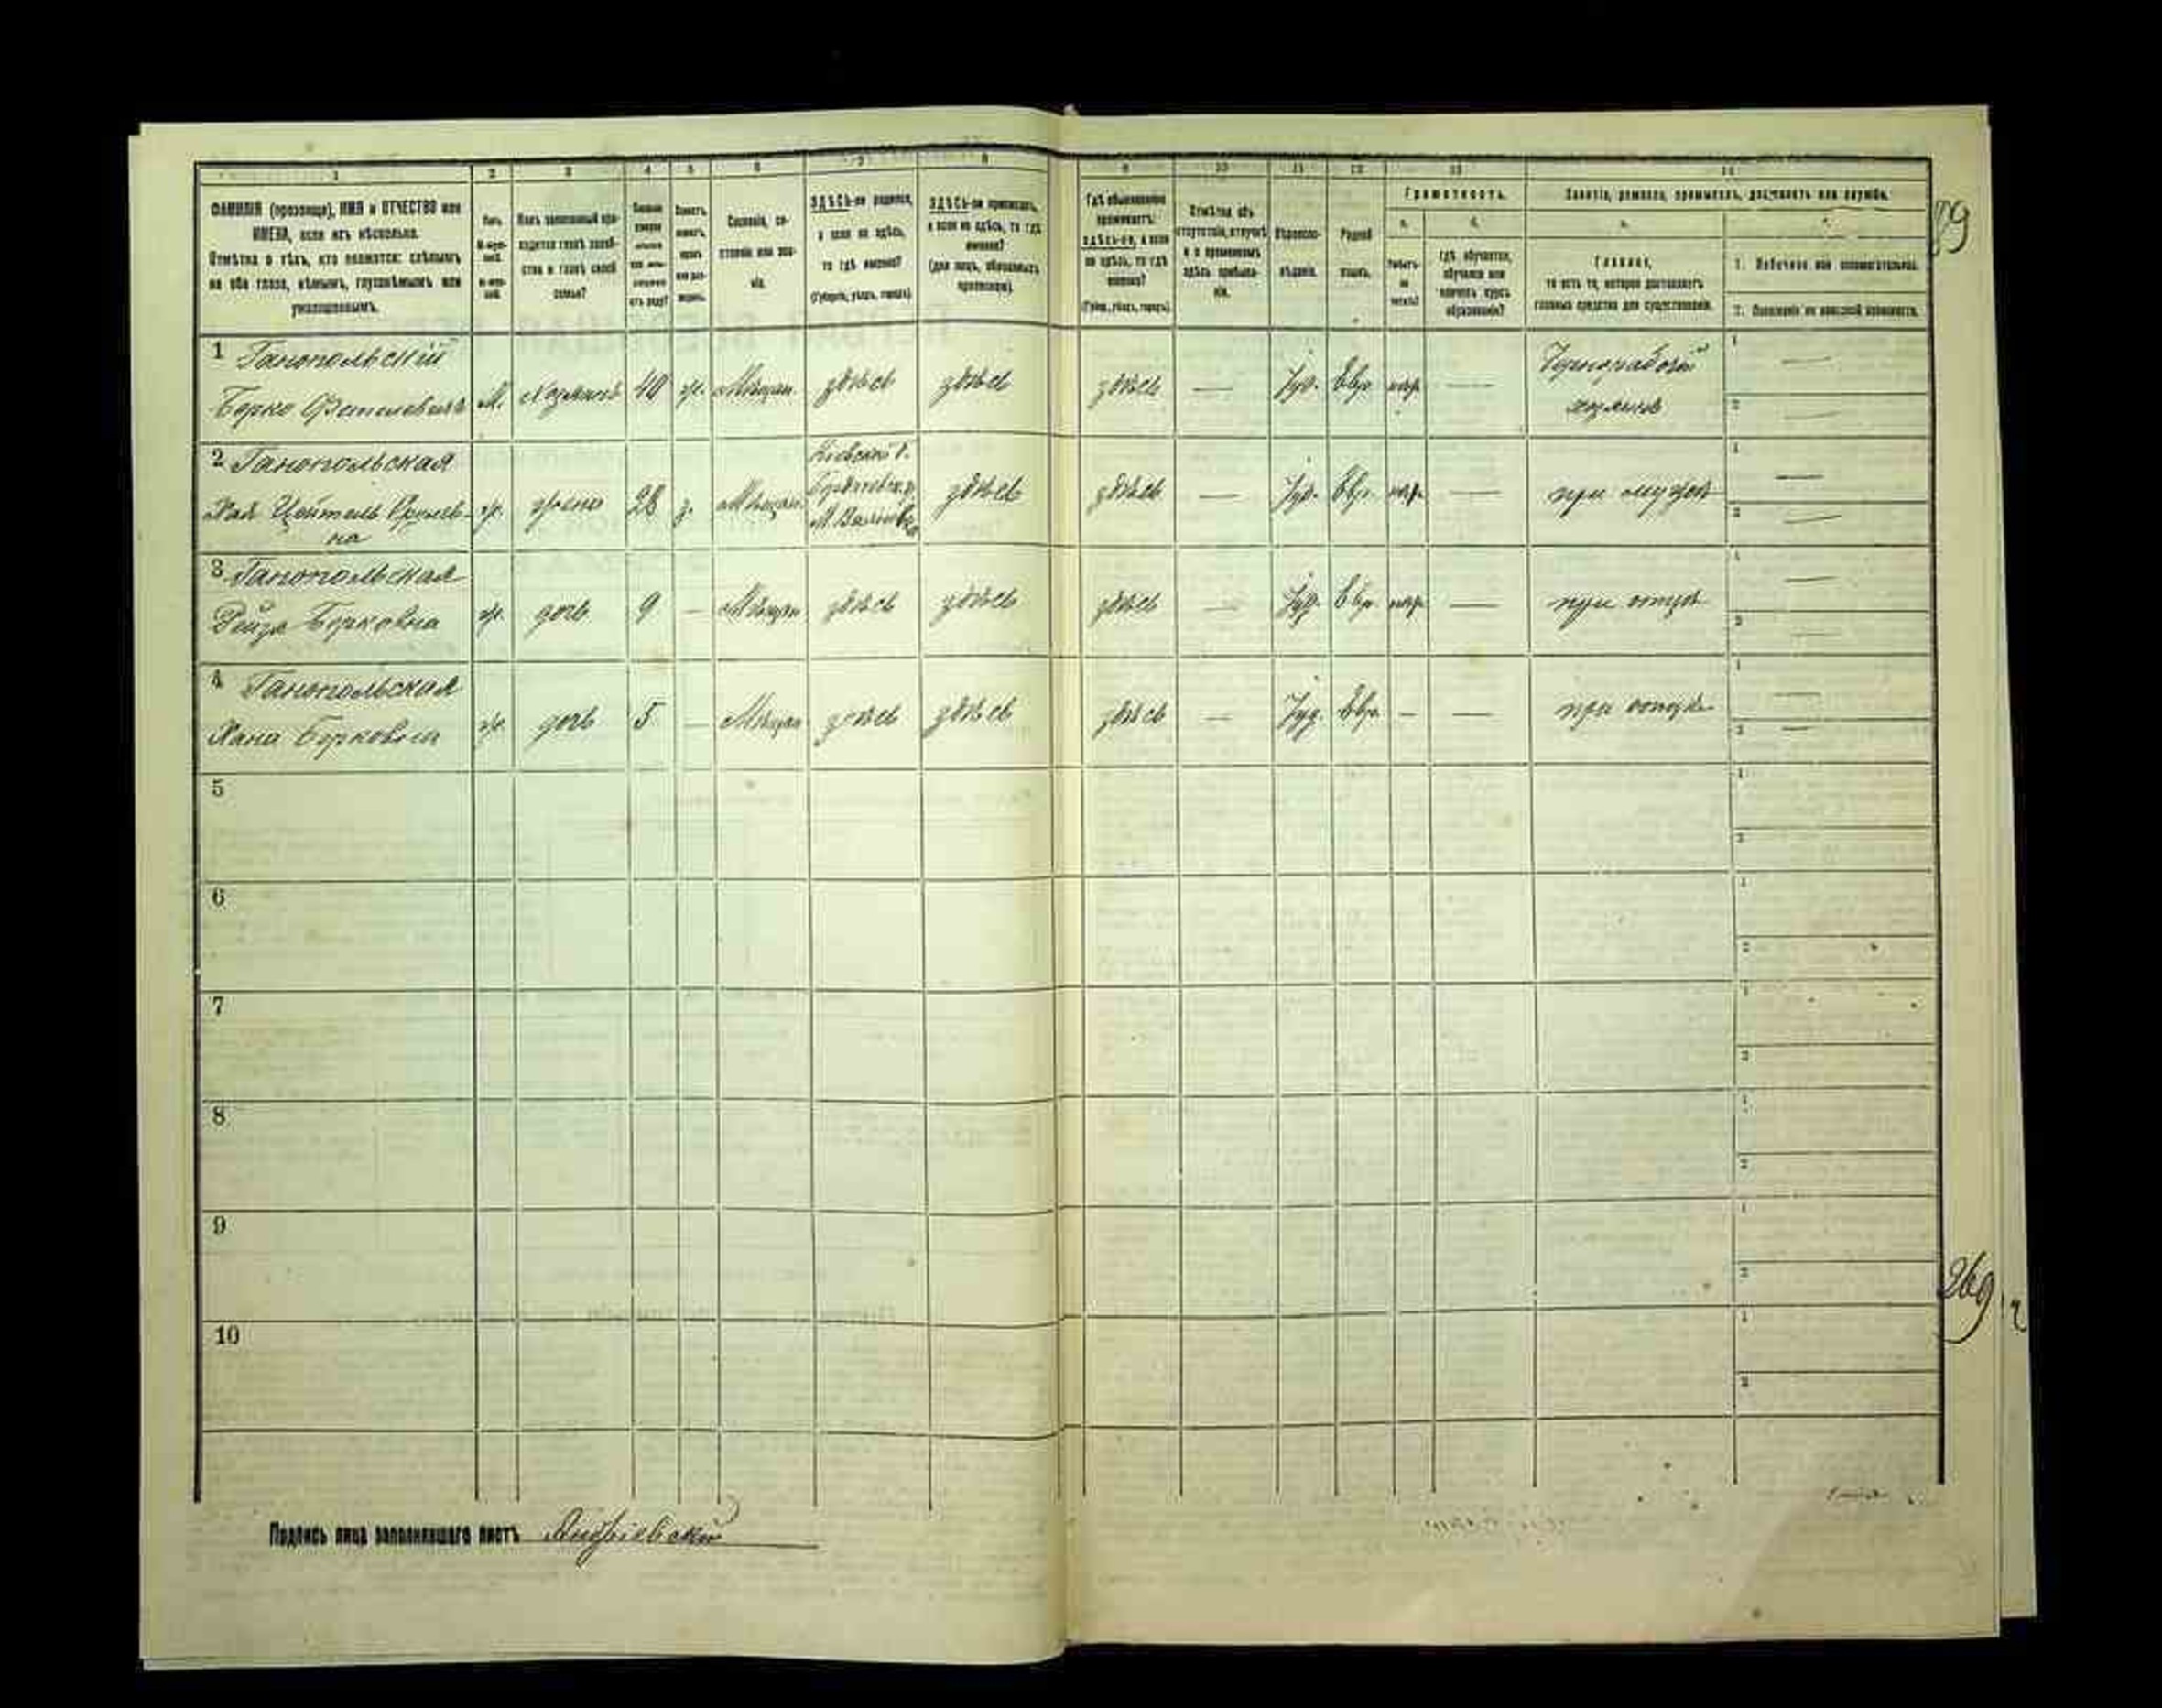 1 2 3 4 5 6 7 8 9 10 11 12 13 14
ФАМИЛІЯ (прозвище), ИМЯ и ОТЧЕСТВО или
ИМЕНА, если ихъ нѣсколько.
Отмѣтка о тѣхъ, кто окажется: слѣпымъ
на оба глаза, нѣмымъ, глухонѣмымъ или
умалишеннымъ.
Полъ.
Какъ записанный при-
ходится главѣ хозяй-
ства и главѣ своей
семьи?
Сословіе, со-
стояніе или зва-
ніе.
ЗДѢСЬ-ли родился,
а если не здѣсь,
то гдѣ именно?
(Губернія, уѣздъ, городъ)
ЗДѢСЬ-ли приписанъ,
а если не здѣсь, то гдѣ
именно?
(для лицъ, обязанныхъ
припискою)
Гдѣ обыкновенно
проживаетъ:
здѣсь-ли, а если
не здѣсь, то гдѣ
именно?
(Губер., уѣздъ, городъ)
Отмѣтка объ
отсутствіи, отлучкѣ
и о временномъ
здѣсь пребыва-
ніи.
Вѣроиспо-
вѣданіе.
Родной
языкъ.
Грамотность.
а.
Умѣетъ-
ли
читать?
б.
гдѣ обучается,
обучался или
кончилъ курсъ
образованія?
Занятіе, ремесло, промыселъ, должность или служба.
а.
Главное,
то есть то, которое доставляетъ
главныя средства для существованія.
1. Побочное или вспомогательное.
2. Положеніе по воинской повинности.
89
1 Ганопольскій
Берко Фетелевичъ М. Хозяинъ 40 ж. Мѣщан. здѣсь здѣсь здѣсь — Іуд. Евр. негр. — Чернорабочій
хозяинъ
1 —
2 —
2 Ганопольская
Хая Цейтель Срулев-
на
ж. жена 28 з. Мѣщан. Кіевской г.
здѣсь здѣсь — Іуд. Евр. негр. — при мужѣ
1 —
2 —
3 Ганопольская
Рейза Берковна ж. дочь 9 — Мѣщан здѣсь здѣсь здѣсь — Іуд. Евр. негр. — при отцѣ
1 —
2 —
4 Ганопольская
Хана Берковна ж. дочь 5 — Мѣщан здѣсь здѣсь здѣсь — Іуд. Евр. — — при отцѣ
1 —
2 —
5 1
2
6 1
2
7 1
2
8 1
2
9 1
2
269
10 1
2
Подпись лица заполнявшаго листъ Андріевскій